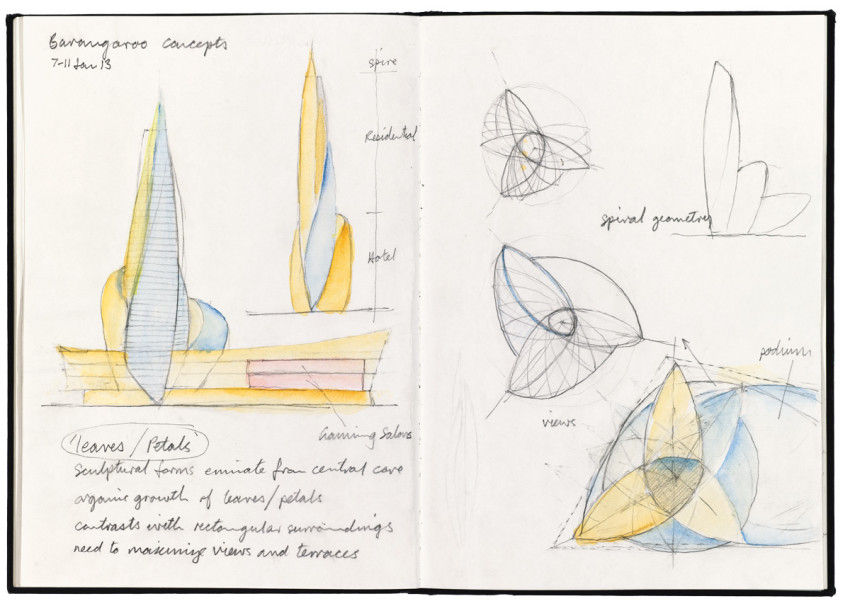 Barangaroo Concepts
7-11 Jan 13
spire
Residential
Hotel
Gaming Salons
'leaves / Petals'
Sculptural forms eminate from central core
organic growth of leaves/petals
contrasts with rectangular surroundings
need to maximize views and terraces
spiral geometry
podium
views